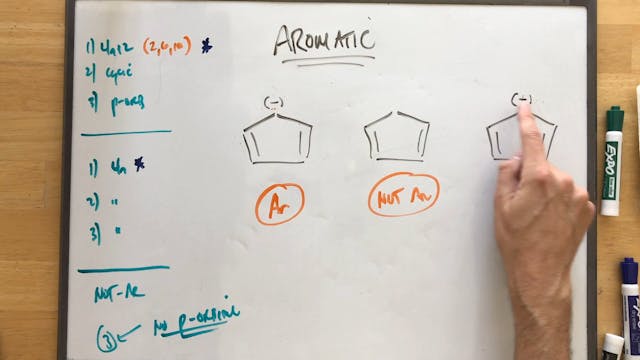 AROMATIC
1) 4n+2 (2,6,10) *
2) cyclic
3) p-orb
1) 4n *
2) "
3) "
NOT-Ar
(3) ← No p-orbital
(-)
(-)
Ar
NOT Ar
EXPO